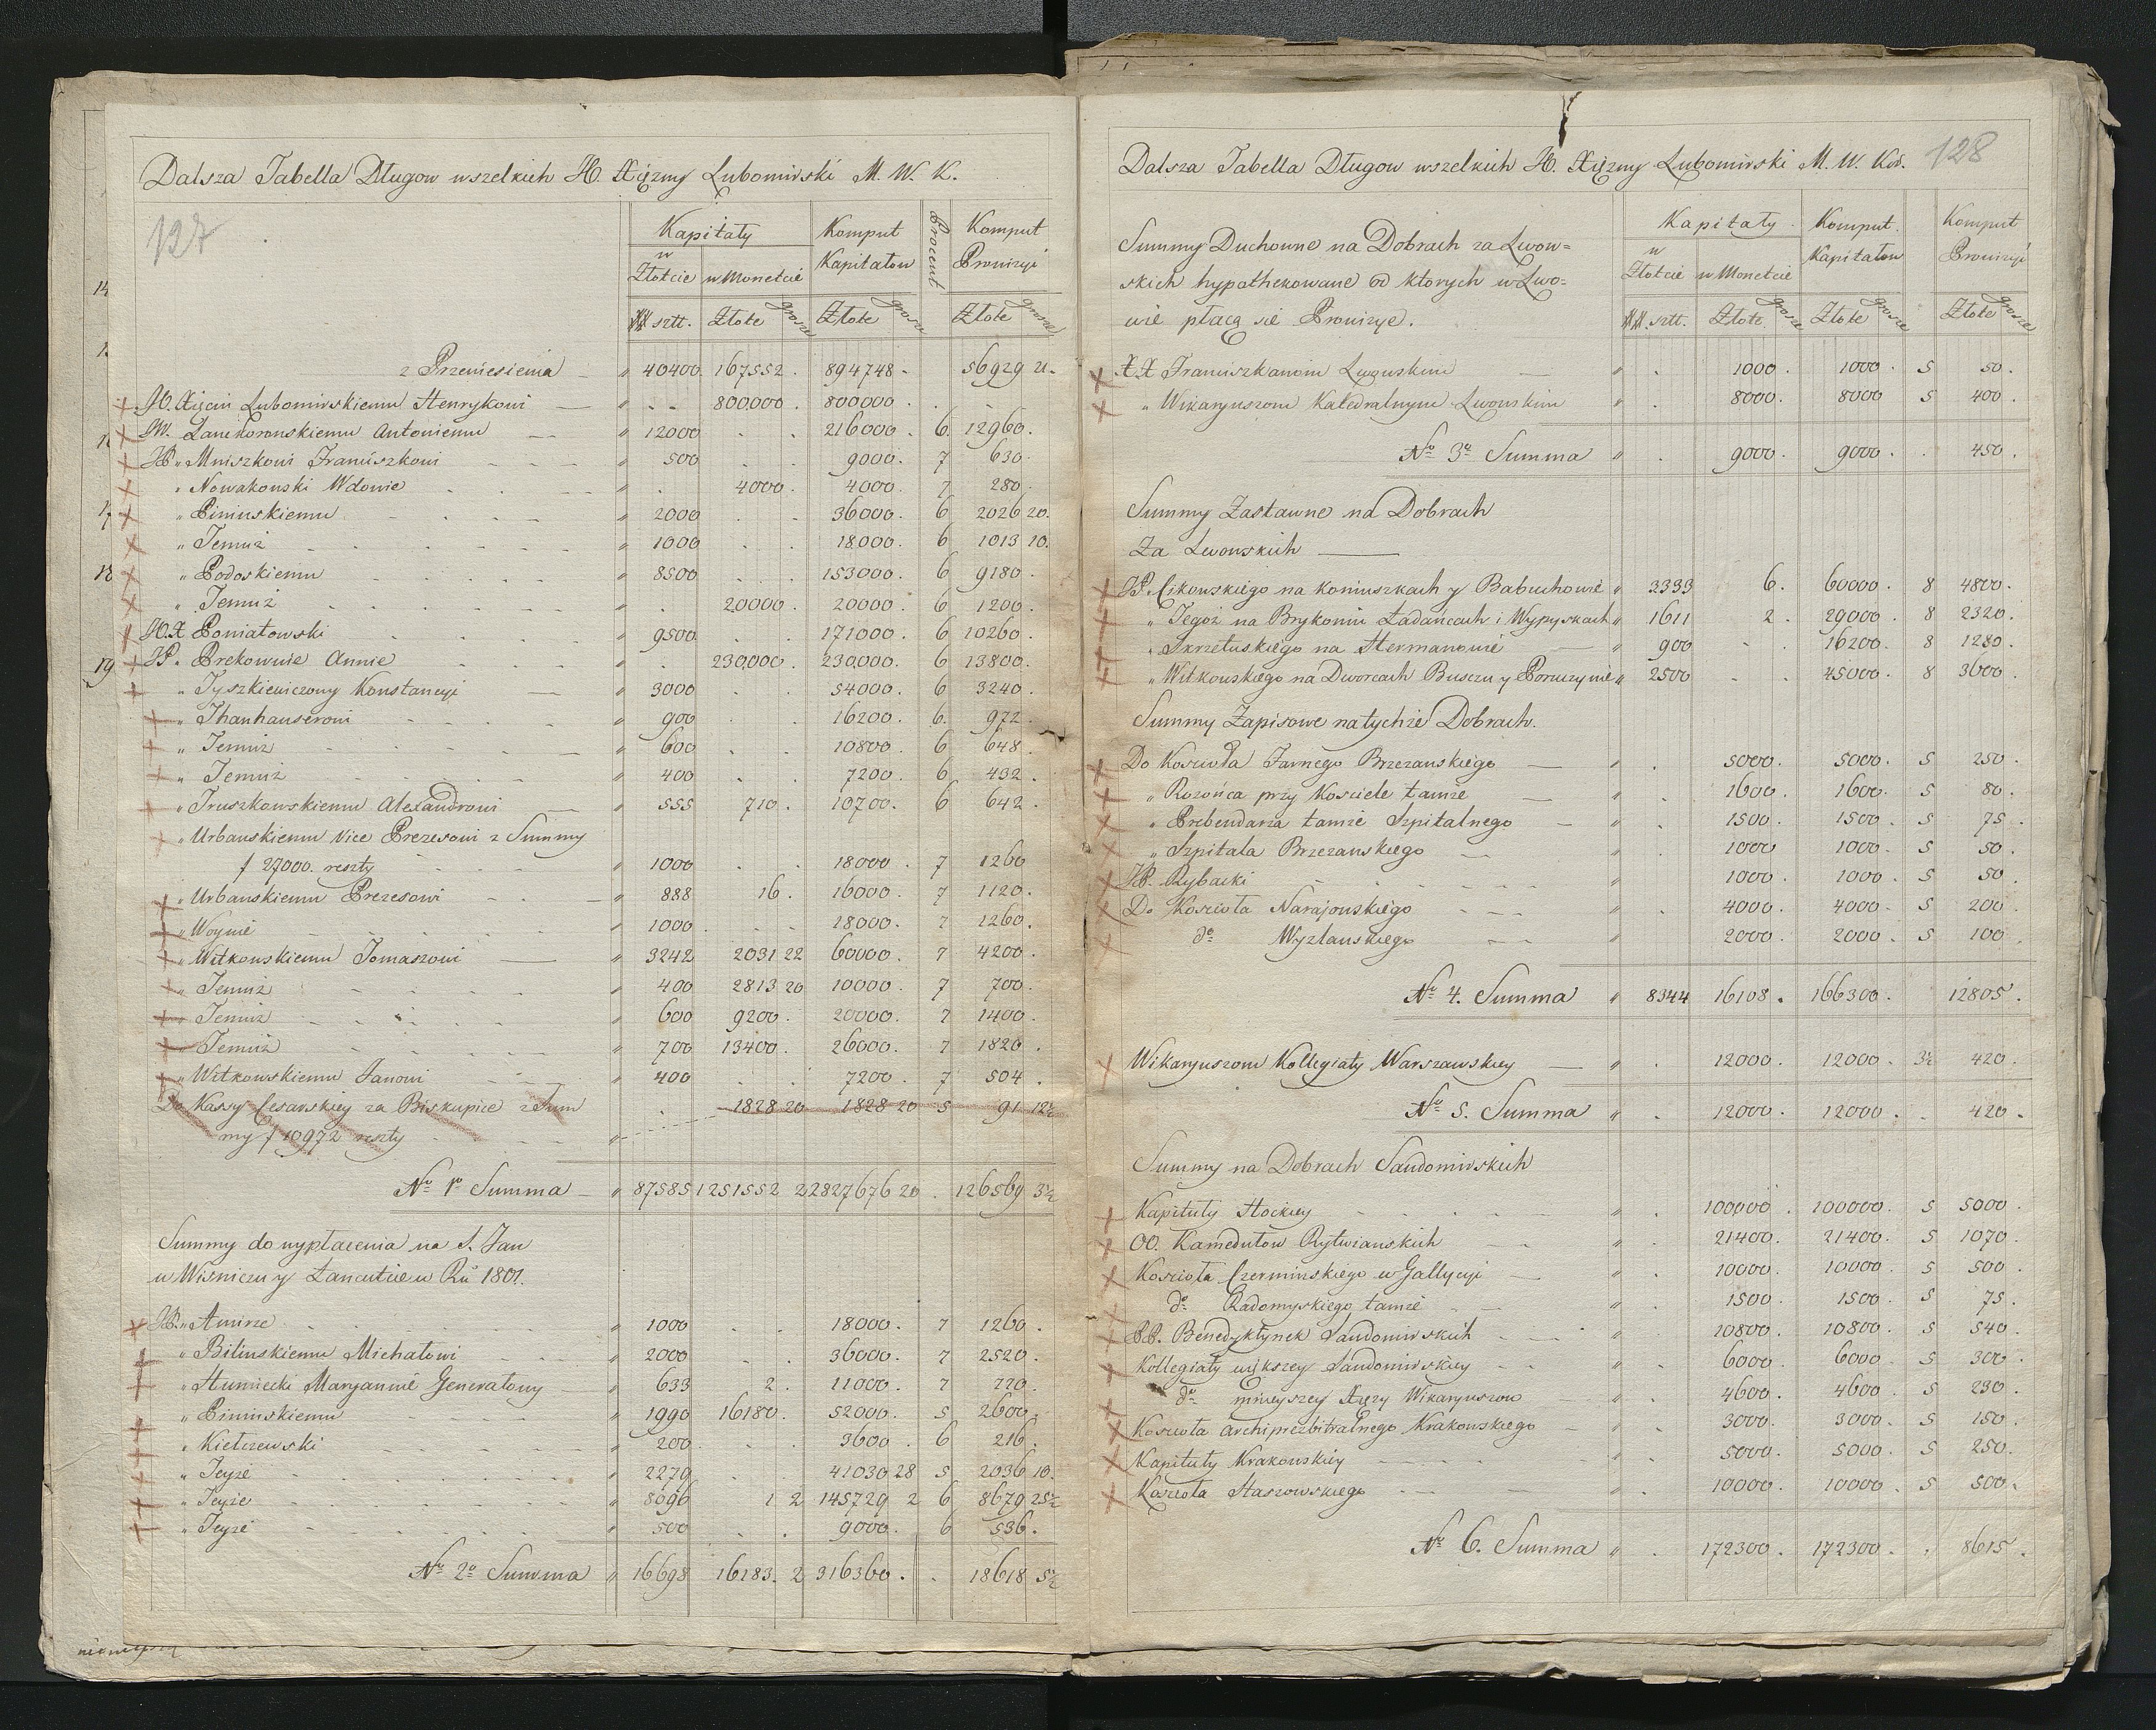 Dalsza Tabella Długow wszelkich JO. Xiężny Lubomirski M. W. K.
127
Kapitały Komput Procent Komput
w Złocie w Monecie Kapitałow Prowizyi
## sztt. Złote grosze Złote grosze Złote grosze
z Przeniesienia " 40400. 167552. 894748 - 56929 21.
JO. Xięciu Lubomirskiemu Henrykowi " . . 800,000. 800000 . . .
JW. Lanckoronskiemu Antoniemu " 12000 . . 216000 . 6. 12960.
JP. " Mniszkowi Franciszkowi " 500 . . 9000. 7 630.
" Nowakowski Wdowie " . 4000. 4000. 7 280.
" Pininskiemu " 2000 . . 36000. 6 2026 20.
" Temuż " 1000 . . 18000. 6 1013 10.
" Podoskiemu " 8500 . . 153000. 6 9180.
" Temuż " . 20000. 20000. 6 1200.
JO.X Poniatowski " 9500 . . 171000. 6 10260.
JP. Prekownie Annie " . 230,000. 230,000. 6 13800.
" Tyszkiewiczowy Konstancyi " 3000 . . 54000. 6 3240.
" Thanhauserowi " 900 . . 16200. 6. 972.
" Temuż " 600 . . 10800. 6 648.
" Temuż " 400 . . 7200. 6 432.
" Truszkowskiemu Alexandrowi " 555 710. 10700. 6 642.
" Urbanskiemu Vice Prezesowi z Summy
f 27000. reszty " 1000 . . 18000. 7 1260
" Urbanskiemu Prezesowi " 888 16. 16000. 7 1120.
" Woynie " 1000. . . 18000. 7 1260.
" Witkowskiemu Tomaszowi " 3242 2031 22 60000. 7 4200.
" Temuż " 400 2813 20 10000. 7 700.
" Temuż " 600 9200. 20000. 7 1400.
" Temuż " 700 13400. 26000. 7 1820.
" Witkowskiemu Janowi " 400 . . 7200. 7 504.
Do Kassy Cesarskiey za Biskupice z Sum
my f 10972 reszty " . 1828 20 1828 20 5 91 12½
No 1o Summa " 87585 1251552 2 2827676 20 . 126569 3½
Summy do wypłacenia na S. Jan
w Wisniczu y Łancutie w Ru 1801.
JP. " Amirze " 1000 . . 18000. 7 1260.
" Bilinskiemu Michałowi " 2000 . . 36000. 7 2520.
" Humiecki Maryannie Generałowy " 633 2. 11000. 7 770.
" Pininskiemu " 1990 16180. 52000. 5 2600.
" Kielczewski " 200 . . 3600. 6 216.
" Teyże " 2279 . . 41030 28 5 2036 10.
" Teyże " 8096 1 2 145729 2 6 8679 25½
" Teyże " 500 . . 9000. 6 536.
No 2o Summa " 16698 16183. 2 316360. . 18618 5½
Dalsza Tabella Długow wszelkich JO. Xiężny Lubomirski M. W. Kor. 128
Kapitały Komput. Komput
w Złocie w Monecie Kapitałow Prowizyi
## sztt. Złote grosze Złote grosze Złote grosze
Summy Duchowne na Dobrach za Lwow=
skich hypothekowane od ktorych w Lwo=
wie płacą się Prowizye.
XX Franciszkanom Lwowskim " . 1000. 1000. 5 50.
" Wikaryuszom Katedralnym Lwowskim " . 8000. 8000 5 400.
No 3o Summa " . 9000. 9000. . 450.
Summy Zastawne na Dobrach
Za Lwowskich
JP. Cikowskiego na Koniuszkach y Babuchowie " 3333 6. 60000. 8 4800.
" Tegoż na Brykoniu Ładańcach i Wypyskach " 1611 2. 29000. 8 2320.
" Skrzetuskiego na Hermanowie " 900 . . 16200. 8 1280.
" Witkowskiego na Dworcach Buszczu y Poruczynie " 2500 . . 45000. 8 3600.
Summy Zapisowe na tychże Dobrach.
Do Kościoła Farnego Brzezanskiego " . 5000. 5000. 5 250.
" Rożańca przy Kościele tamże " . 1600. 1600. 5 80.
" Prebendarza tamże Szpitalnego " . 1500. 1500. 5 75.
" Szpitala Brzezanskiego " 1000 1000. 5 50.
JP. Rybacki " 1000. 1000. 5 50.
Do Kościoła Narajowskiego " . 4000. 4000. 5 200.
do Wyzłanskiego " 2000. 2000. 5 100.
No 4. Summa " 8344 16108. 166300. 12805.
Wikaryuszom Kollegiaty Warszawskiey " . 12000. 12000. 3½ 420.
No 5. Summa " . 12000. 12000. . 420.
Summy na Dobrach Sandomirskich
Kapituły Płockiey " . 100000. 100000. 5 5000.
OO. Kamedułow Rytwianskich " . 21400. 21400. 5 1070.
Kościoła Czerminskiego w Gallycyi " . 10000. 10000. 5 500.
do Radomyskiego tamże " . 1500. 1500. 5 75.
PP. Benedyktynek Sandomirskich " 10800. 10800. 5 540.
Kollegiaty większey Sandomirskiey " . 6000. 6000. 5 300.
do mnieyszey Xięży Wikaryuszow " . 4600. 4600. 5 230.
Kościoła Archiprezbitralnego Krakowskiego " . 3000. 3000. 5 150.
Kapituły Krakowskiey " . 5000. 5000. 5 250.
Kościoła Staszowskiego " . 10000. 10000. 5 500.
No 6. Summa " . 172300. 172300. . 8615.
14
17
18
19